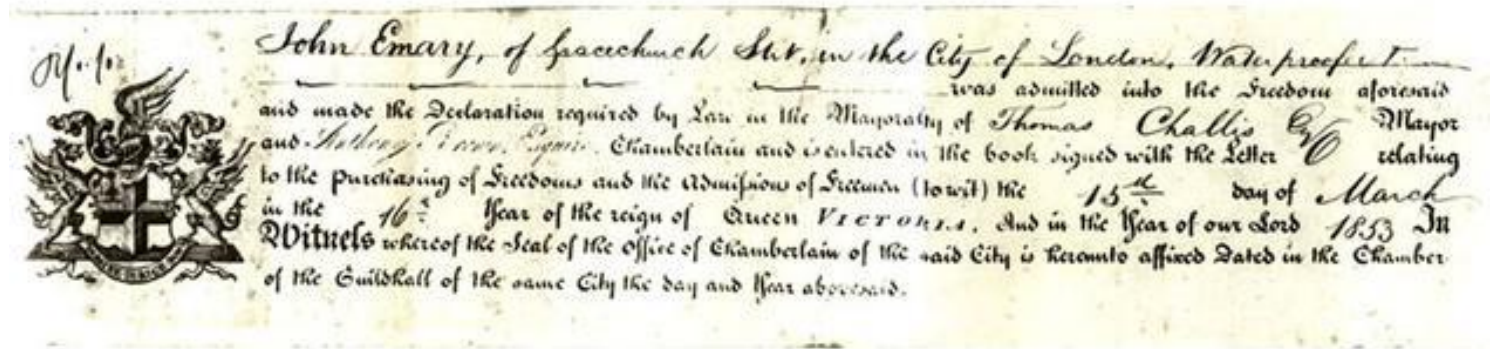 John Emary, of Gracechurch Strt, in the City of London, Waterproofer
was admitted into the Freedom aforesaid
and made the Declaration required by Law in the Mayoralty of Thomas Challis Esq Mayor
and Anthony Brown Esquire, Chamberlain and is entered in the book signed with the Letter relating
to the purchasing of Freedoms and the Admissions of Freemen (to wit) the 15th day of March
in the 16th Year of the reign of Queen VICTORIA, And in the Year of our Lord 1853 In
Witness whereof the Seal of the Office of Chamberlain of the said City is hereunto affixed Dated in the Chamber
of the Guildhall of the same City the day and Year abovesaid.